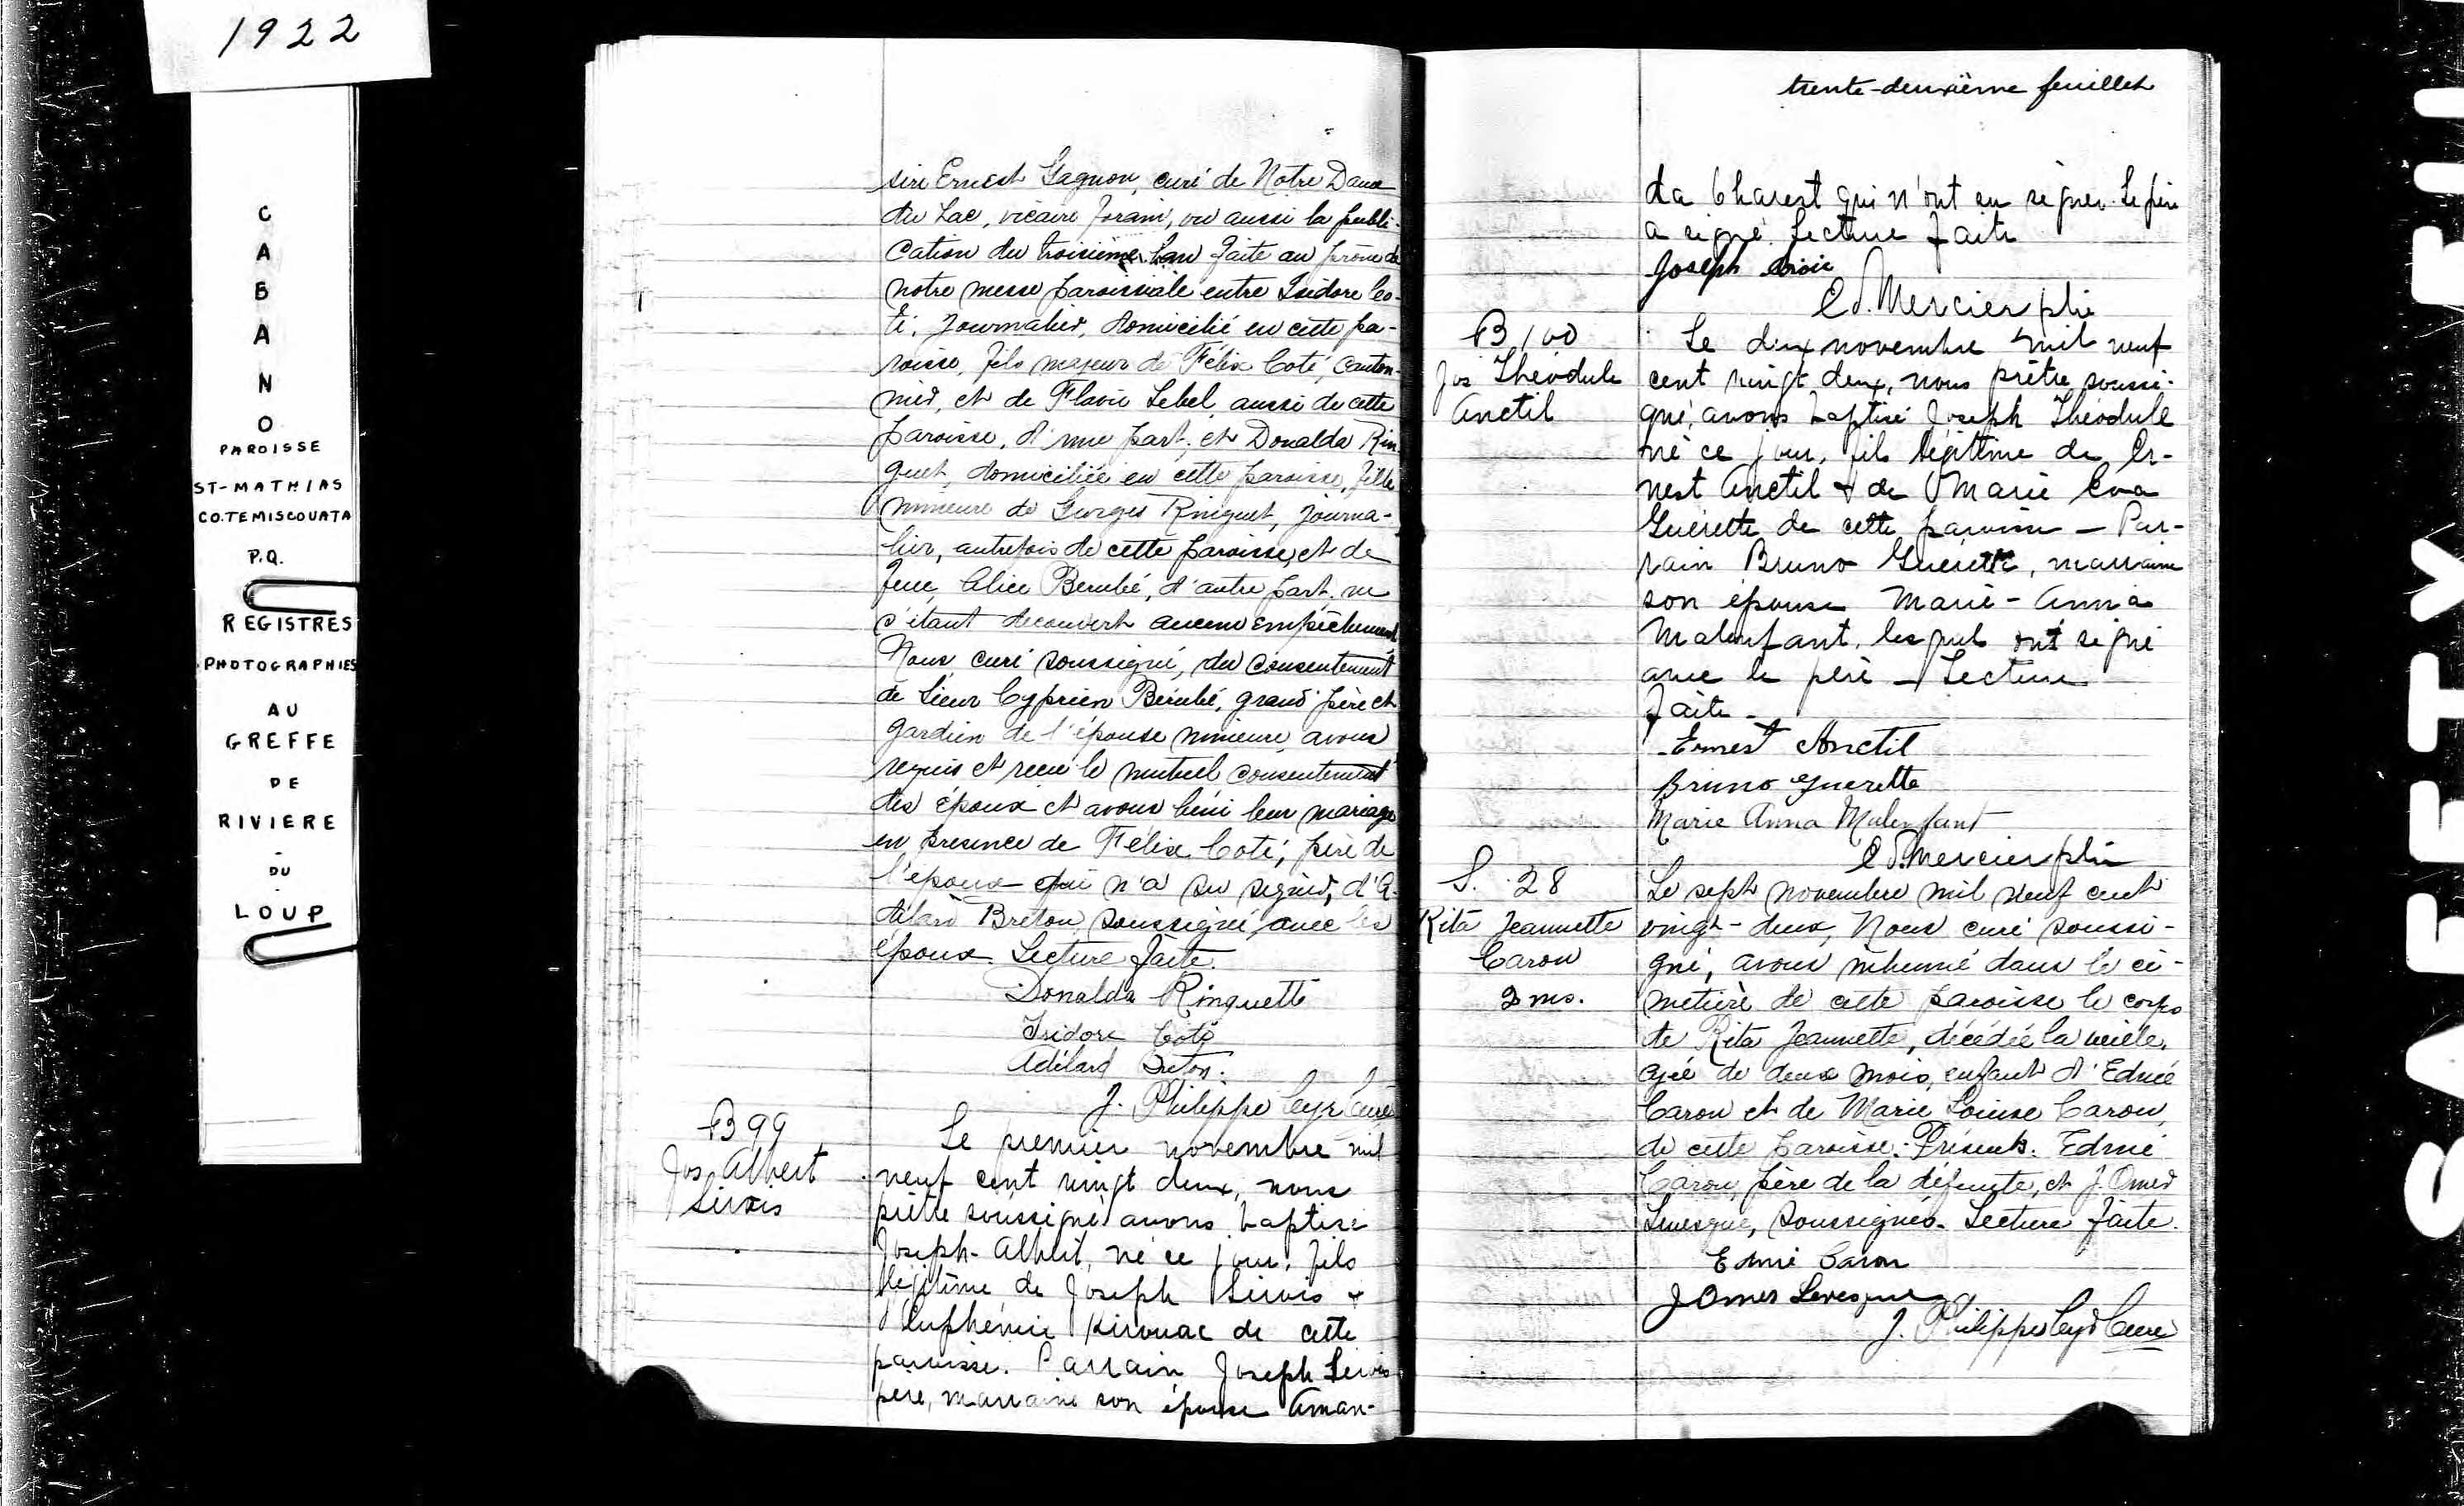 1922
CABANO
PAROISSE
ST-MATHIAS
CO. TEMISCOUATA
P.Q.
REGISTRES
PHOTOGRAPHIES
AU
GREFFE
DE
RIVIERE
-
DU
-
LOUP
sire Ernest Gagnon, curé de Notre Dame
du Lac, vicaire forain, vu aussi la publi-
cation du troisième ban faite au prône de
notre messe paroissiale entre Isidore Co-
té, journalier, domicilié en cette pa-
roisse, fils majeur de Félix Coté, canton-
nier, et de Flavie Lebel aussi de cette
paroisse, d'une part, et Donalda Rin-
guet, domiciliée en cette paroisse, fille
mineure de Georges Ringuet, journa-
lier, autrefois de cette paroisse, et de
feue Alice Berubé, d'autre part, ne
s'étant découvert aucun empêchement
Nous curé soussigné, du consentement
de Sieur Cyprien Bérubé, grand'père et
gardien de l'épouse mineure, avons
requis et reçu le mutuel consentement
des époux et avons béni leur mariage
en présence de Félix Coté, père de
l'époux qui n'a su signer, d'A-
délard Breton soussigné avec les
époux Lecture faite.
Donalda Ringuette
Isidore Coté
Adélard Breton.
J. Philippe Cyr Curé
B 99
Jos Albert
Sirois
Le premier novembre mil
neuf cent vingt deux, nous
prêtre soussigné avons baptisé
Joseph-Albert, né ce jour, fils
légitime de Joseph Sirois &
Euphémie Kirouac de cette
paroisse. Parrain Joseph Sirois
père, marraine son épouse Aman-
trente-deuxième feuillet
da Charest qui n'ont su signer. Le père
a signé. Lecture faite
Joseph Sirois
Ed. Mercier ptre
B 100
Jos Théodule
Anctil
Le deux novembre mil neuf
cent vingt deux, nous prêtre soussi-
gné, avons baptisé Joseph Théodule
né ce jour, fils légitime de Er-
nest Anctil & de Marie Eva
Guérette de cette paroisse — Par-
rain Bruno Guérette, marraine
son épouse Marie-Anna
Malenfant, lesquels ont signé
avec le père — Lecture
faite —
Ernest Anctil
Bruno Guerette
Marie Anna Malenfant
Ed. Mercier ptre
S. 28
Rita Jeannette
Caron
2 ms.
Le sept novembre mil neuf cent
vingt-deux, Nous curé soussi-
gné, avons inhumé dans le ci-
metière de cette paroisse le corps
de Rita Jeannette, décédée la veille,
agée de deux mois, enfant d'Edmé
Caron et de Marie Louise Caron,
de cette paroisse. Présents: Edmé
Caron, père de la défunte, et J. Omer
Levesque, soussignés. Lecture faite.
Edmé Caron
J Omer Levesque
J. Philippe Cyr Curé
SAFETY